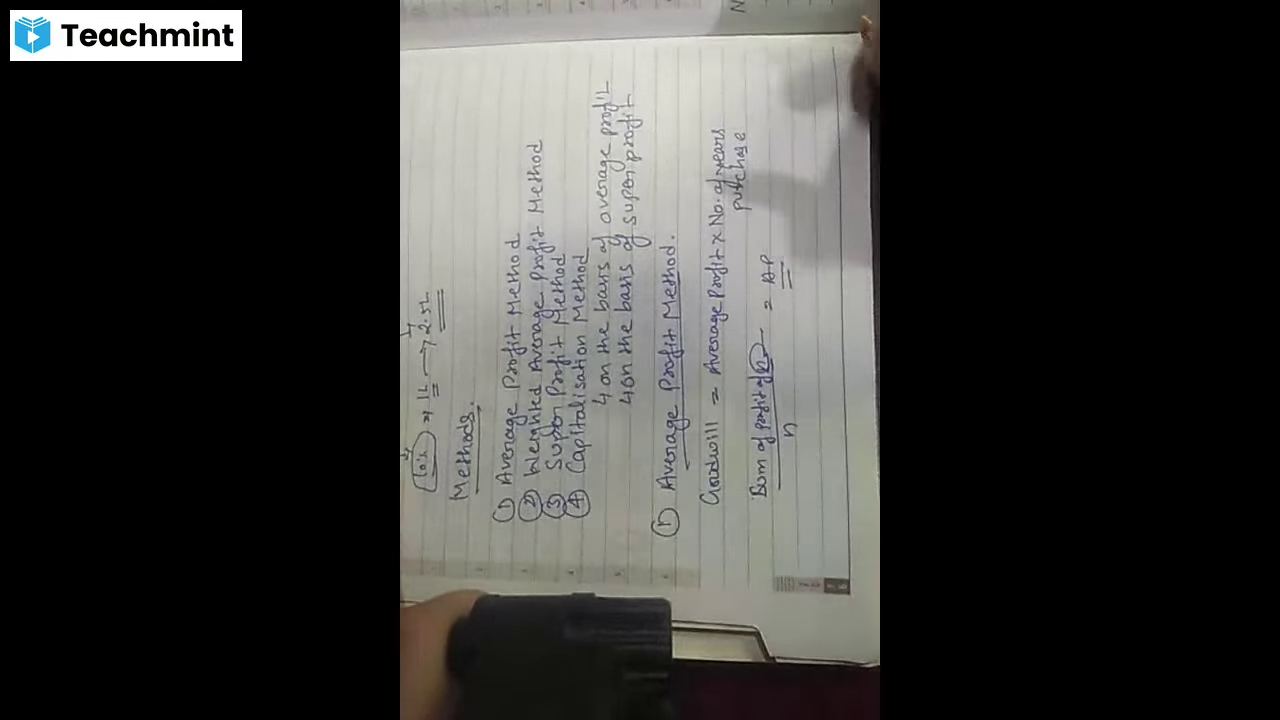 Teachmint
10% → 1L → 2.5L
Methods.
① Average Profit Method
② Weighted Average Profit Method
③ Super Profit Method
④ Capitalisation Method
↳ on the basis of average profit
↳ on the basis of super profit
① Average Profit Method.
Goodwill = Average Profit x No. of years
purchase
Sum of profit of n
n
= AP